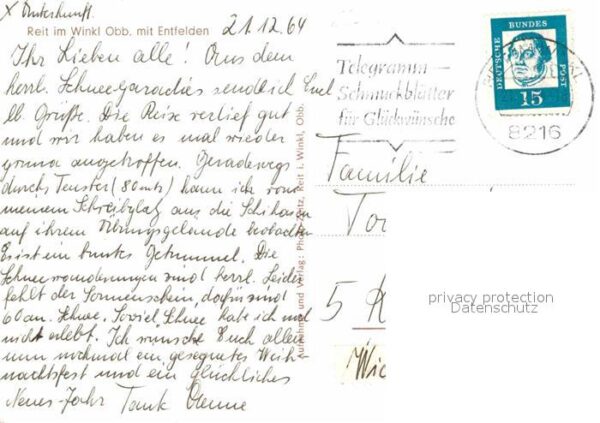 x Unterkunft.
Reit im Winkl Obb. mit Entfelden
21.12.64
Ihr Lieben alle! Aus dem
herrl. Schneeparadies send ich Euch
lb. Grüße. Die Reise verlief gut
und wir haben es mal wieder
prima angetroffen. Geradewegs
durchs Fenster (80 mtr) kann ich von
meinem Schreibplatz aus die Schihasen
auf ihrem Übungsgelände beobachten
Es ist ein buntes Getümmel. Die
Schneewanderungen sind herrl. Leider
fehlt der Sonnenschein, dafür sind
60 cm. Schnee. Soviel Schnee habe ich noch
nicht erlebt. Ich wünsche Euch allen
nun nochmal ein gesegnetes Weih-
nachtsfest und ein Glückliches
Neues-Jahr Tante Änne
Aufnahme und Verlag: Photo Reit i. Winkl, Obb.
Telegramm-
Schmuckblätter
für Glückwünsche
DEUTSCHE
BUNDES
POST
15
8216
Familie
5
privacy protection
Datenschutz